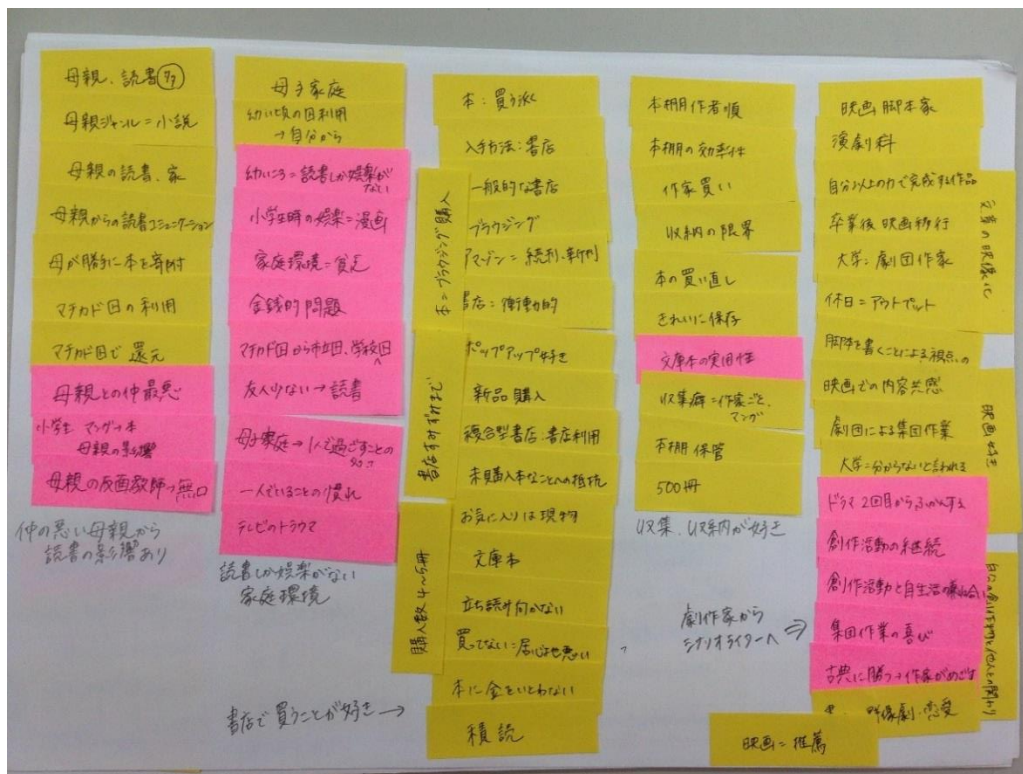 母親、読書
母親ジャンル=小説
母親の読書、家
母親からの読書コミュニケーション
母が勝手に本を寄附
マチカド図の利用
マチカド図で還元
母親との仲最悪
小学生 マンガ→本
母親の影響
母親の反面教師→無口
仲の悪い母親から
読書の影響あり
母子家庭
幼い頃の図利用
→自分から
幼いころ=読書しか娯楽が
ない
小学生時の娯楽=漫画
家庭環境=貧乏
金銭的問題
マチカド図から市立図、学校図へ
友人少ない→読書
母子家庭→1人で過ごすことの
一人でいることの慣れ
テレビのトラウマ
読書しか娯楽がない
家庭環境
本:買う派
入手方法:書店
一般的な書店
ブラウジング
アマゾン=続刊、新刊
書店=衝動的
ポップアップ好き
新品購入
複合型書店:書店利用
未購入本なことへの抵抗
お気に入りは現物
文庫本
立ち読み向かない
買ってない=居心地悪い
本に金をいとわない
積読
本=ブラウジング購入
書店すみずみまで
購入数4〜5冊
書店で買うことが好き→
本棚作者順
本棚の効率性
作家買い
収納の限界
本の買い直し
きれいに保存
文庫本の実用性
収集癖=作家ごと、
マンガ
本棚保管
500冊
収集、収納が好き
劇作家から
シナリオライターへ ⇒
映画脚本家
演劇科
自分以上の力で完成する作品
卒業後映画移行
大学:劇団作家
休日=アウトプット
脚本を書くことによる視点の
映画での内容共感
劇団による集団作業
大学=分からないと言われる
ドラマ2回目から
創作活動の継続
創作活動と自生活の
集団作業の喜び
古典に勝つ→作家がめざす
群像劇、恋愛
映画=推薦
文章の映像化
映画好き